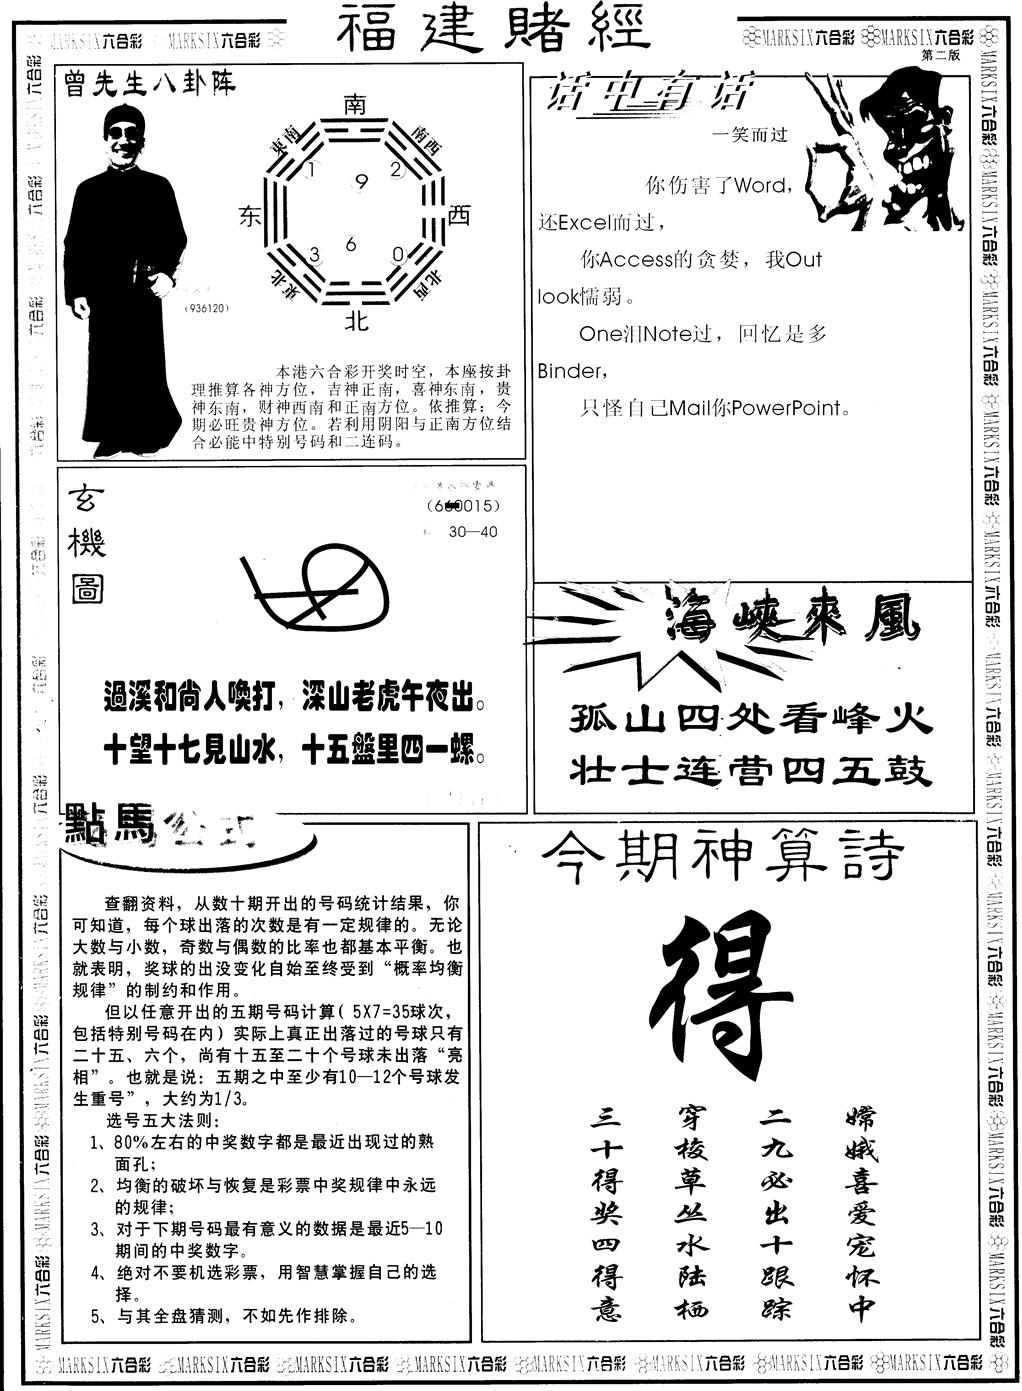 福建賭經
MARKSIX六合彩 MARKSIX六合彩
MARKSIX六合彩 MARKSIX六合彩
第二版
曾先生八卦阵
南
東南
南西
1
9
2
东
西
3
6
0
東北
北西
北
(936120)
本港六合彩开奖时空，本座按卦
理推算各神方位，吉神正南，喜神东南，贵
神东南，财神西南和正南方位。依推算：今
期必旺贵神方位。若利用阴阳与正南方位结
合必能中特别号码和二连码。
话中有话
一笑而过
你伤害了Word，
还Excel而过，
你Access的贪婪，我Out
look懦弱。
One泪Note过，回忆是多
Binder，
只怪自己Mail你PowerPoint。
玄機圖
30—40
過溪和尚人喚打，深山老虎午夜出。
十望十七見山水，十五盤里四一螺。
海峽來風
孤山四处看峰火
壮士连营四五鼓
點馬公式
查翻资料，从数十期开出的号码统计结果，你
可知道，每个球出落的次数是有一定规律的。无论
大数与小数，奇数与偶数的比率也都基本平衡。也
就表明，奖球的出没变化自始至终受到“概率均衡
规律”的制约和作用。
但以任意开出的五期号码计算（5X7=35球次，
包括特别号码在内）实际上真正出落过的号球只有
二十五、六个，尚有十五至二十个号球未出落“亮
相”。也就是说：五期之中至少有10—12个号球发
生重号”，大约为1/3。
选号五大法则：
1、80%左右的中奖数字都是最近出现过的熟
面孔；
2、均衡的破坏与恢复是彩票中奖规律中永远
的规律；
3、对于下期号码最有意义的数据是最近5—10
期间的中奖数字。
4、绝对不要机选彩票，用智慧掌握自己的选
择。
5、与其全盘猜测，不如先作排除。
今期神算詩
得
嫦娥喜爱宠怀中
二九必出十跟踪
穿梭草丛水陆栖
三十得奖四得意
MARKSIX六合彩 MARKSIX六合彩 MARKSIX六合彩 MARKSIX六合彩 MARKSIX六合彩 MARKSIX六合彩 MARKSIX六合彩 MARKSIX六合彩